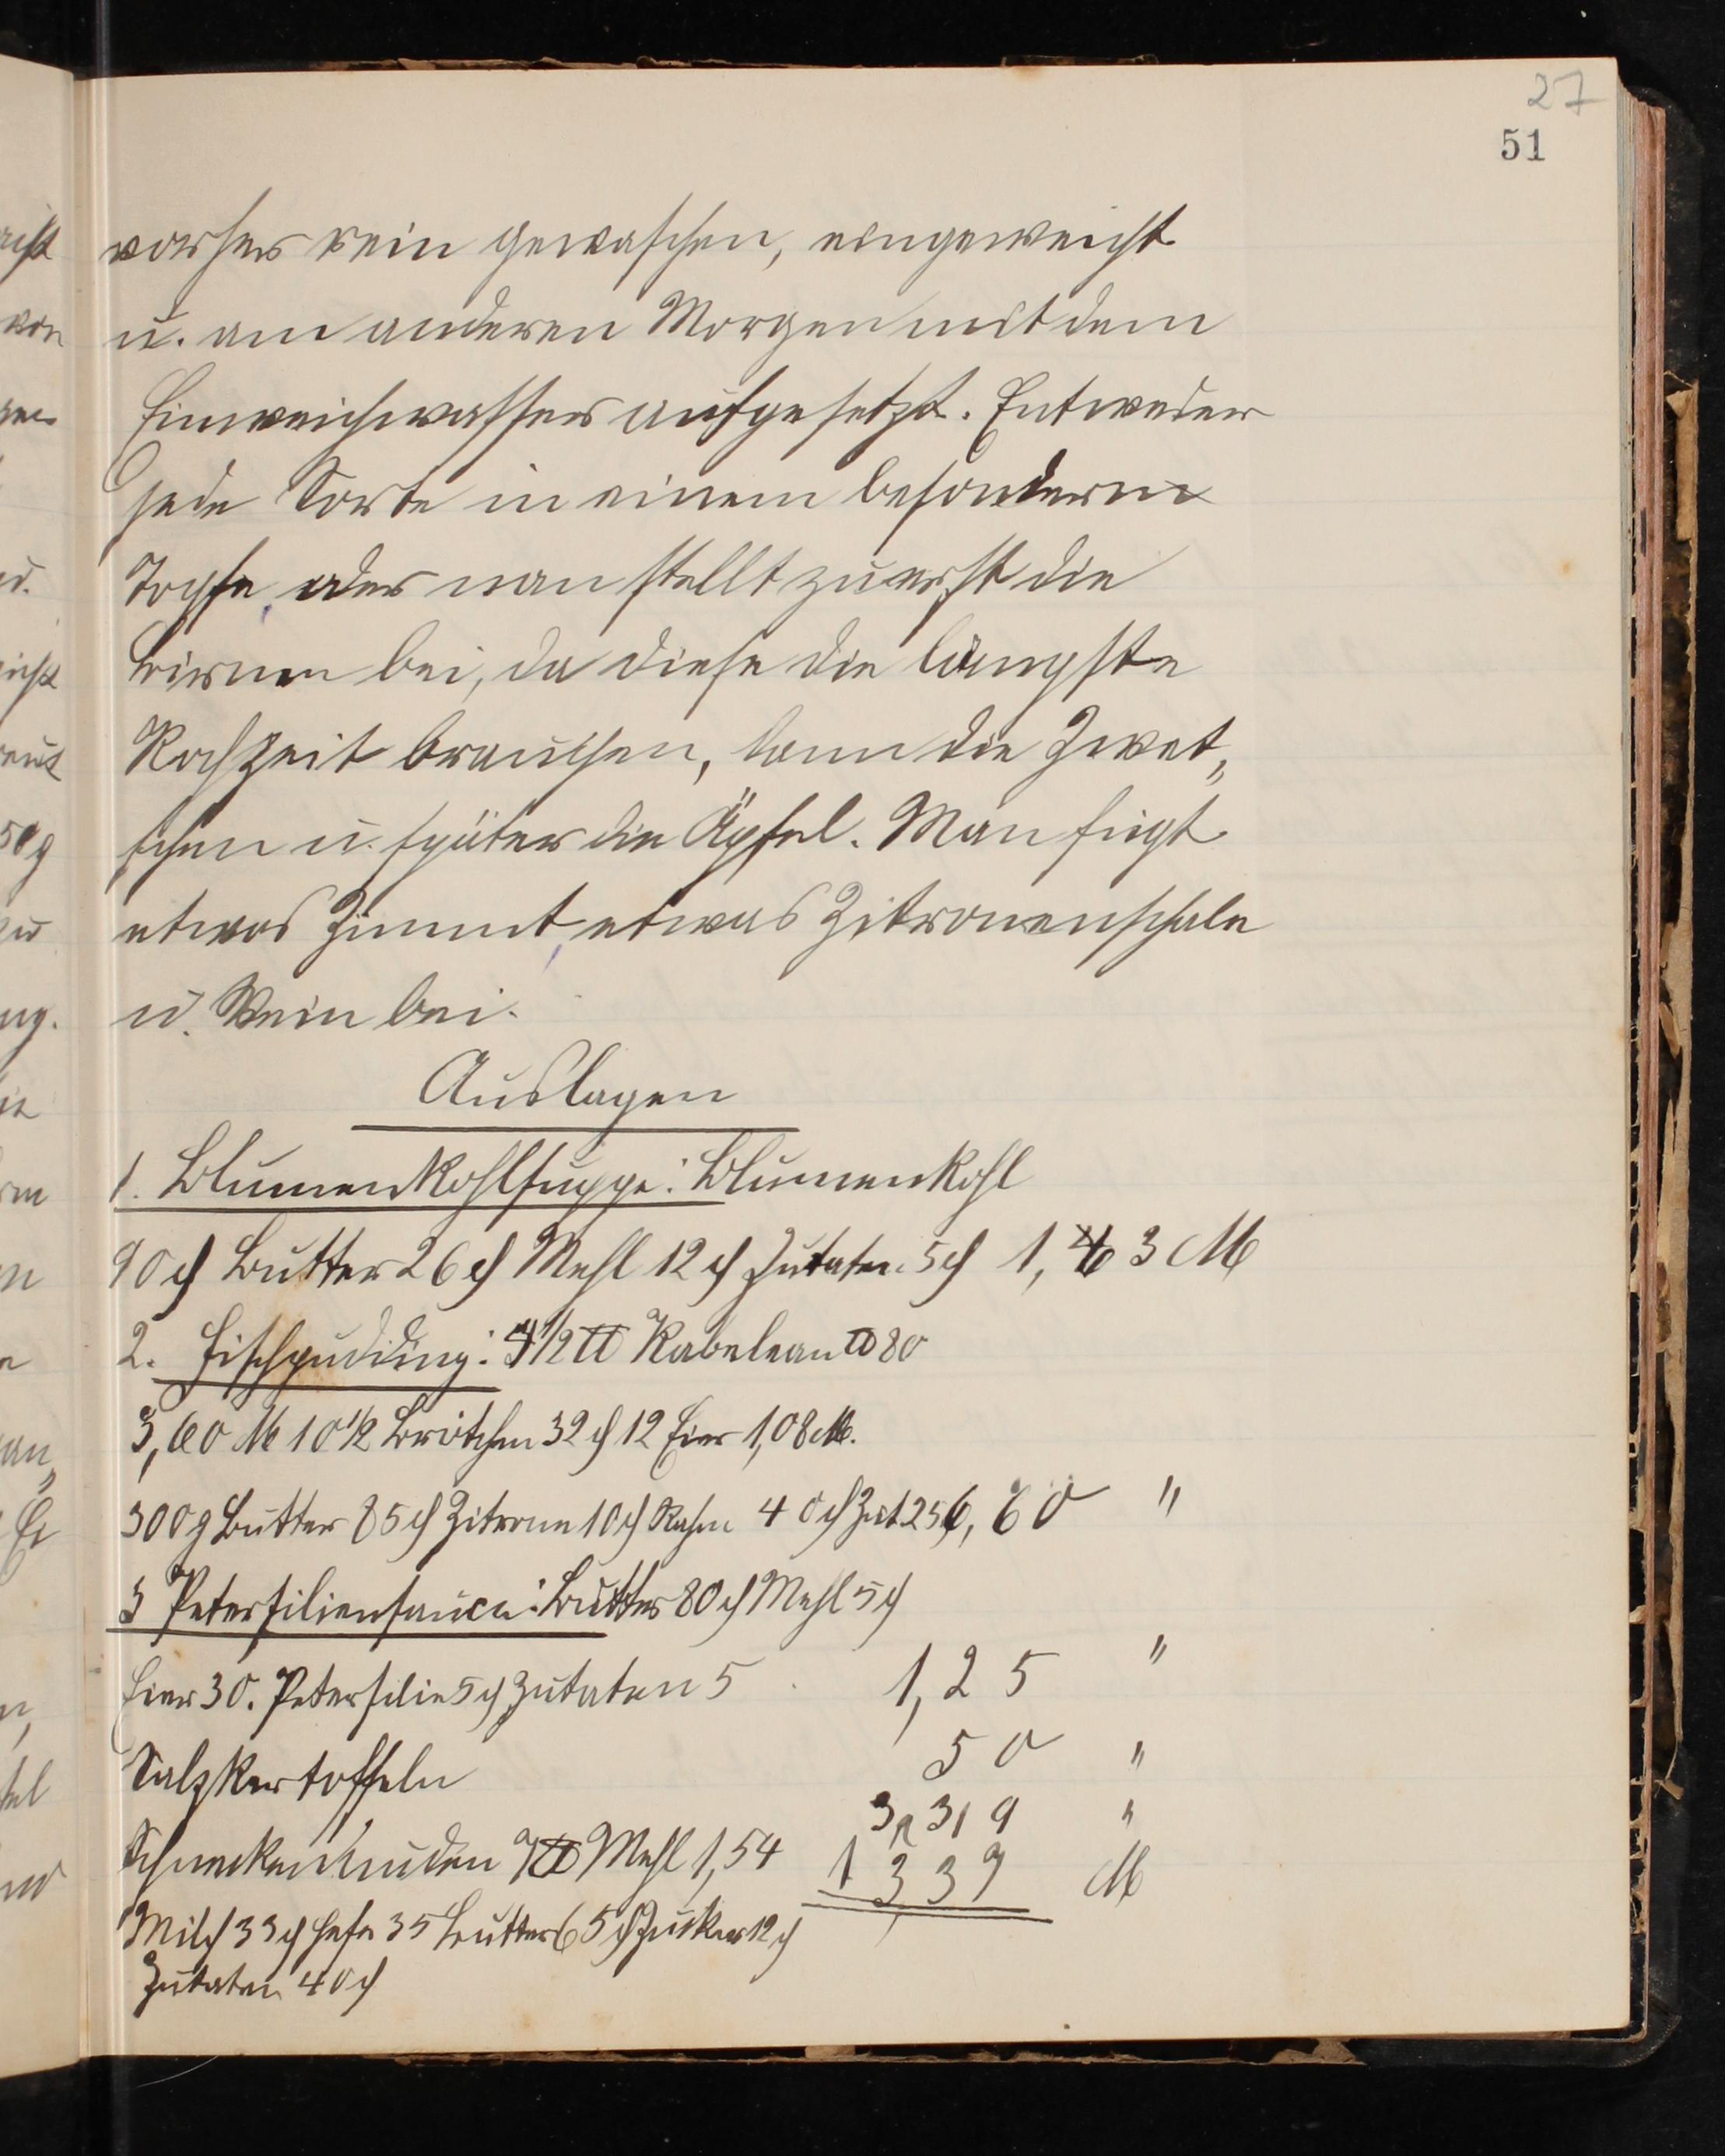 27
51
vorher rein gewaschen, eingeweicht
u. am anderen Morgen mit dem
Einweichwasser aufgesetzt. Entweder
jede Sorte in einem besonderen
Topfe, oder man stellt zuerst die
Birnen bei, da diese die längste
Kochzeit brauchen, dann die Zwet„
schen u. später die Äpfel. Man fügt
etwas Zimmt, etwas Zitronenschale
u. Wein bei.
Auslagen
1. Blumenkohlsuppe: Blumenkohl
90 ₰ Butter 26 ₰ Mehl 12 ₰ Zutaten 5 ₰ 1, 3 M
2. Fischpudding: 4 1/2 ℔ Kabeleau ℔ 80
3,60 M 10 1/2 Brötchen 32 ₰ 12 Eier 1,08 M.
300 g Butter 85 ₰ Zitrone 10 ₰ Rahm 40 ₰ Zut. 25 6,60 "
3 Petersiliensauce: Butter 80 ₰ Mehl 5 ₰
Eier 30. Petersilie 5 ₰ Zutaten 5 1,25 "
Salzkartoffeln 50 "
Schneckennudeln 7 ℔ Mehl 1,54 3,39 "
Milch 33 ₰ Hefe 35 Butter 65 ₰ Zucker 12 ₰ 13,37 M
Zutaten 40 ₰